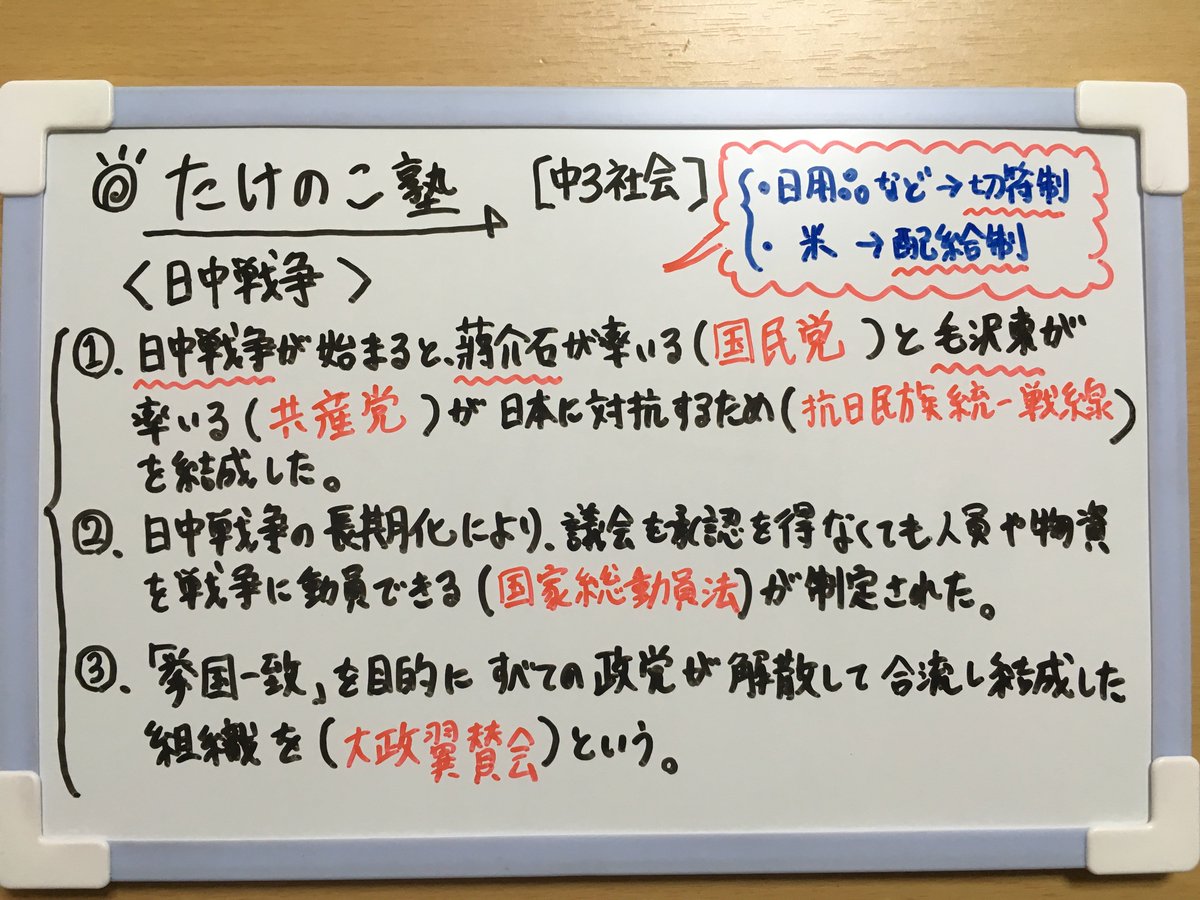 たけのこ塾 [中3社会]
・日用品など→切符制
・米→配給制
〈日中戦争〉
①.日中戦争が始まると、蔣介石が率いる(国民党)と毛沢東が
率いる(共産党)が日本に対抗するため(抗日民族統一戦線)
を結成した。
②.日中戦争の長期化により、議会を承認を得なくても人員や物資
を戦争に動員できる(国家総動員法)が制定された。
③.「挙国一致」を目的にすべての政党が解散して合流し結成した
組織を(大政翼賛会)という。